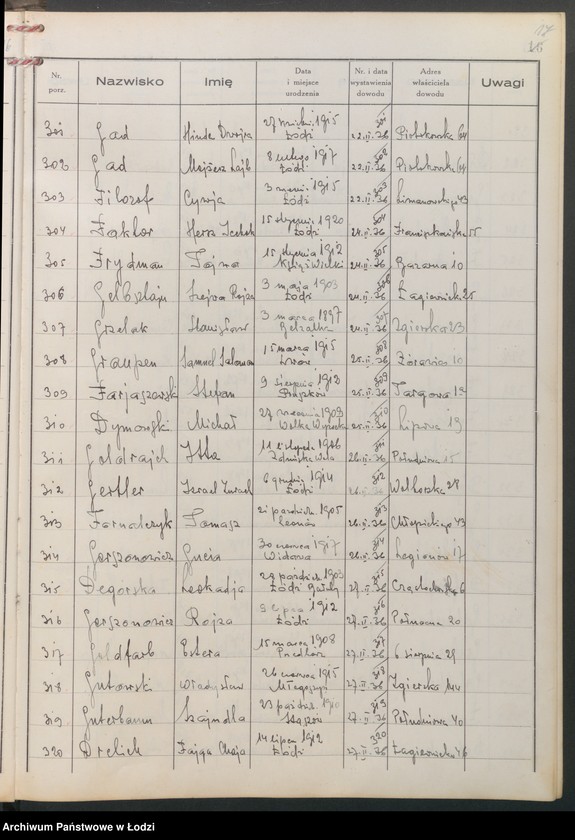 17
Nr. porz. Nazwisko Imię Data i miejsce urodzenia Nr. i data wystawienia dowodu Adres właściciela dowodu Uwagi
301 Gad Hinda Dwojra 1915 Łódź 301 22.II.36 Piotrkowska 64
302 Gad Mojżesz Lajb 8 lutego 1917 Łódź 302 22.II.36 Piotrkowska 64
303 Filozof Cywja 1915 Łódź 303 22.II.36 Limanowskiego 43
304 Faktor Hersz Icek 15 stycznia 1920 Łódź 304 24.II.36 Franciszkańska
305 Frydman Fajna 15 stycznia 1912 305 24.II.36 10
306 3 maja 1903 Łódź 306 24.II.36 Łagiewnicka 25
307 Grzelak Stanisław 3 marca 1897 307 24.II.36 Zgierska 23
308 Graupen Samuel Salomon 15 marca 1915 Lwów 308 25.II.36 Żórawia 10
309 Farjaszewski Stefan 9 sierpnia 1912 309 25.II.36 Targowa
310 Dymowski Michał 27 1909 310 25.II.36 Lipowa 19
311 Goldrajch Itta 11 listopada 311 26.II.36 Południowa 15
312 Gertler Izrael 6 grudnia 1914 Łódź 312 26.II.36 28
313 Farnadczyk Tomasz 21 paźdz. 1905 313 26.II.36 Chłopickiego 43
314 Gerszonowicz Gucia 30 czerwca 1917 Widawa 314 26.II.36 Legionów 17
315 Degórska Leokadja 29 paździer. 1903 Łódź 315 27.II.36 6
316 Gerszonowicz Rojza lipca 1912 Łódź 316 27.II.36 Północna 20
317 Goldfarb Estera 15 marca 1908 317 27.II.36 6 sierpnia 29
318 Gutowski Władysław 26 czerwca 1915 318 27.II.36 Zgierska
319 Guterbaum Szajndla 23 paźdz. 319 27.II.36 Południowa 40
320 Drelich Fajga Chaja 14 lipca 1912 Łódź 320 27.II.36 Łagiewnicka 46
Archiwum Państwowe w Łodzi